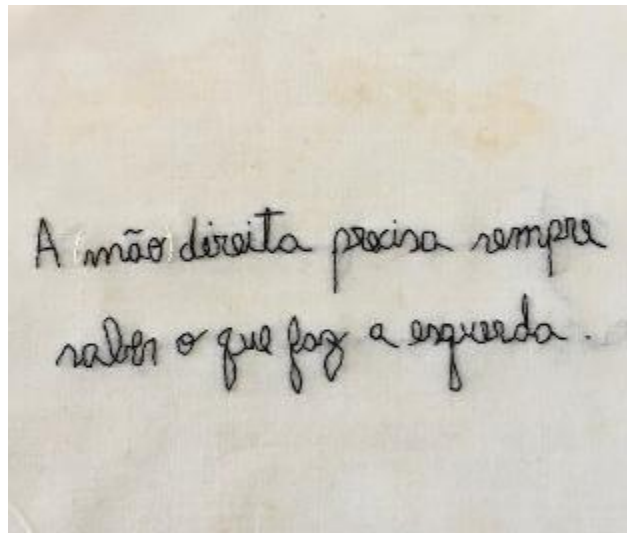 A mão direita precisa sempre
saber o que faz a esquerda.